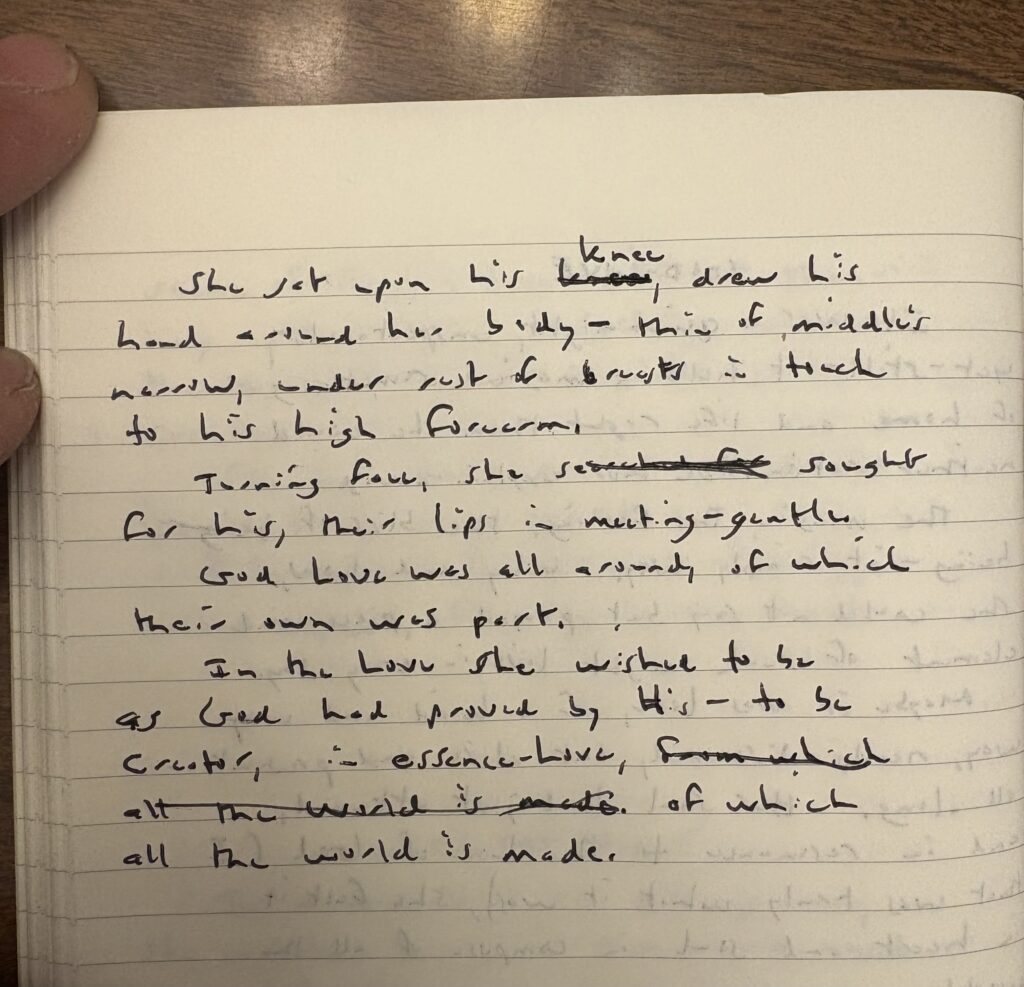 knee
She sat upon his knee, drew his
hand around her body – thin of middle's
narrow, under rest of breasts in touch
to his high forearm.
Turning face, she searched for sought
for his, their lips in meeting-gentle.
God Love was all around, of which
their own was part.
In the Love she wished to be
as God had proved by His – to be
Creator, in essence-Love, from which
all the world is made. of which
all the world is made.